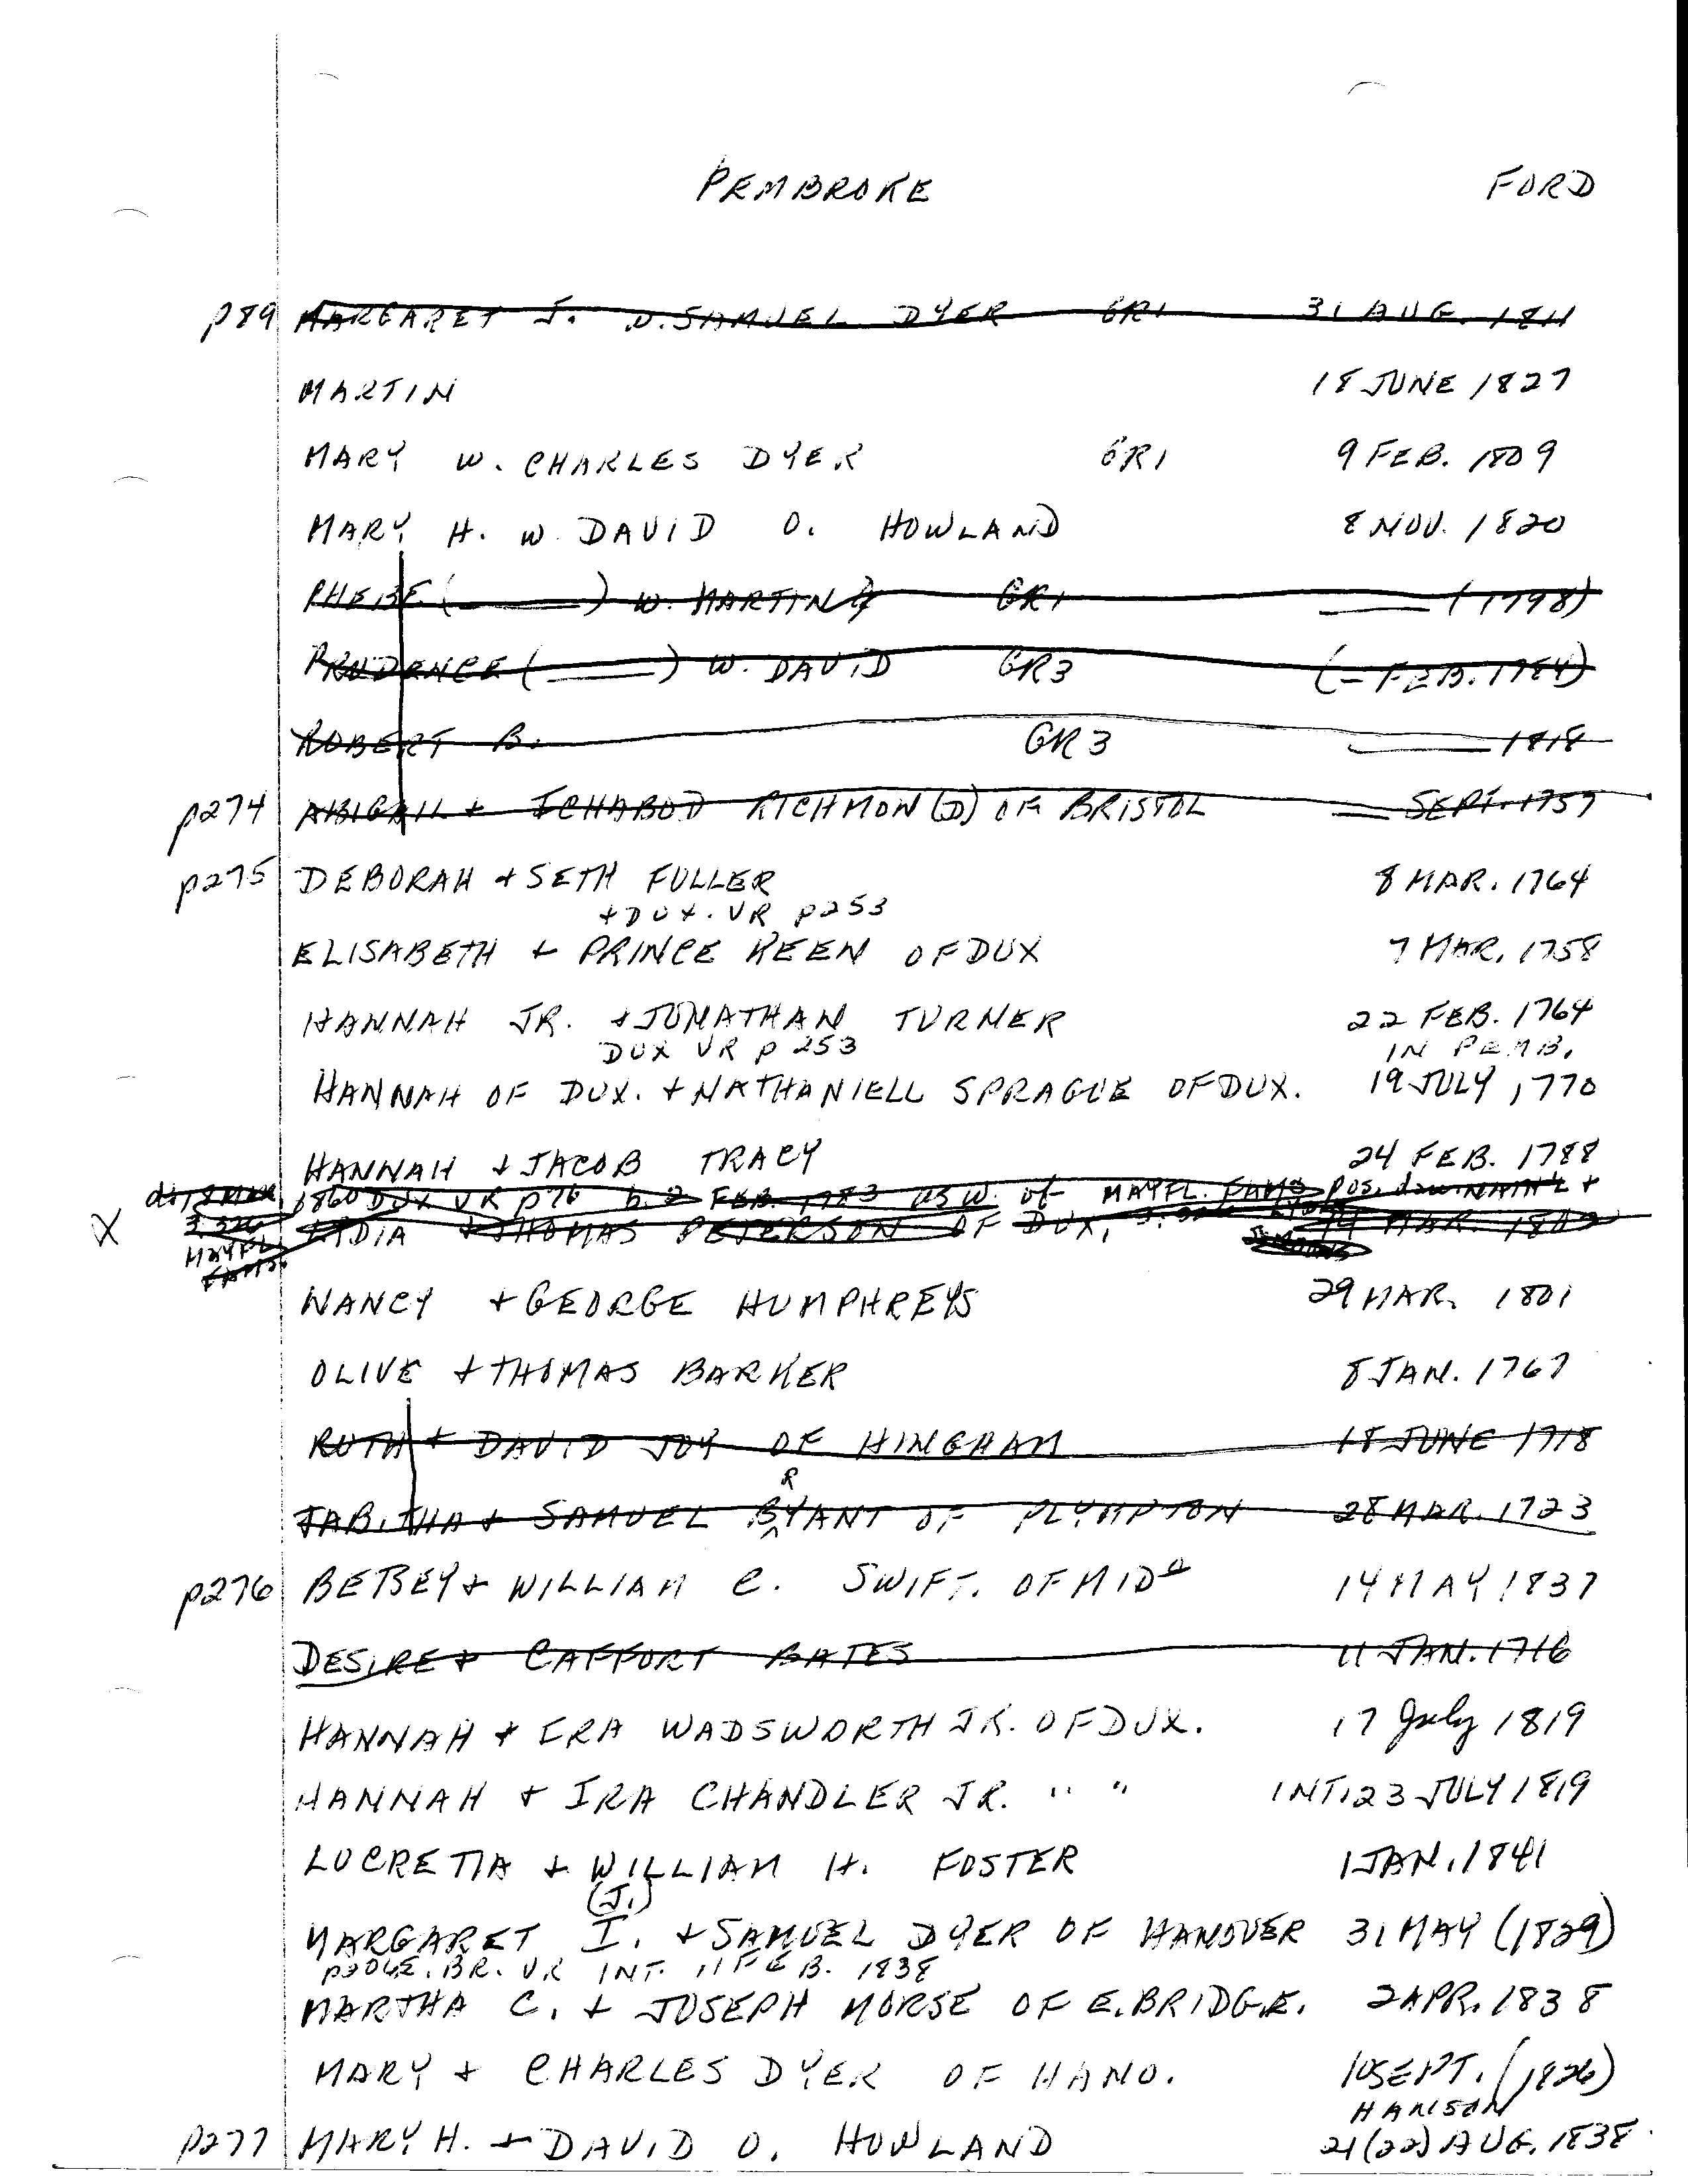 PEMBROKE FORD
p89 MARGARET J. W. SAMUEL DYER GR1 31 AUG. 1811
MARTIN 18 JUNE 1827
MARY W. CHARLES DYER GR1 9 FEB. 1809
MARY H. W. DAVID O. HOWLAND 8 NOV. 1820
PHEBE (———) W. MARTIN GR1 —— (1798)
PRUDENCE (———) W. DAVID GR3 (— FEB. 1784)
ROBERT B. GR3 ——— 1818
p274 ABIGAIL + ICHABOD RICHMON(D) OF BRISTOL — SEPT. 1757
p275 DEBORAH + SETH FULLER 8 MAR. 1764
+ DUX. VR p253
ELISABETH + PRINCE KEEN OF DUX 7 MAR. 1758
HANNAH JR. + JONATHAN TURNER 22 FEB. 1764
DUX VR p 253 IN PEMB.
HANNAH OF DUX. + NATHANIELL SPRAGUE OF DUX. 19 JULY 1770
HANNAH + JACOB TRACY 24 FEB. 1788
1860 DUX VR p76 b. 2 FEB. 1783 as w. of MAYFL. FAMS pos. dau. NATH'L +
X 3.326 LYDIA + THOMAS PETERSON OF DUX. 14 MAR. 1802
MAYFL. FAMS.
NANCY + GEORGE HUMPHREYS 29 MAR. 1801
OLIVE + THOMAS BARKER 8 JAN. 1767
RUTH + DAVID JOY OF HINGHAM 18 JUNE 1718
R
TABITHA + SAMUEL BYANT OF PLYMPTON 28 MAR. 1723
p276 BETSEY + WILLIAM C. SWIFT. OF MID 14 MAY 1837
DESIRE + CAFFORT BATES 11 JAN. 1716
HANNAH + IRA WADSWORTH JR. OF DUX. 17 July 1819
HANNAH + IRA CHANDLER JR. " " INT. 23 JULY 1819
LUCRETIA + WILLIAM H. FOSTER 1 JAN. 1841
(J.)
MARGARET I. + SAMUEL DYER OF HANOVER 31 MAY (1829)
E. BR. VR INT. 11 FEB. 1838
MARTHA C. + JOSEPH MORSE OF E. BRIDGE. 2 APR. 1838
MARY + CHARLES DYER OF HANO. 10 SEPT. (1826)
HANSON
p277 MARY H. + DAVID O. HOWLAND 21 (22) AUG. 1838